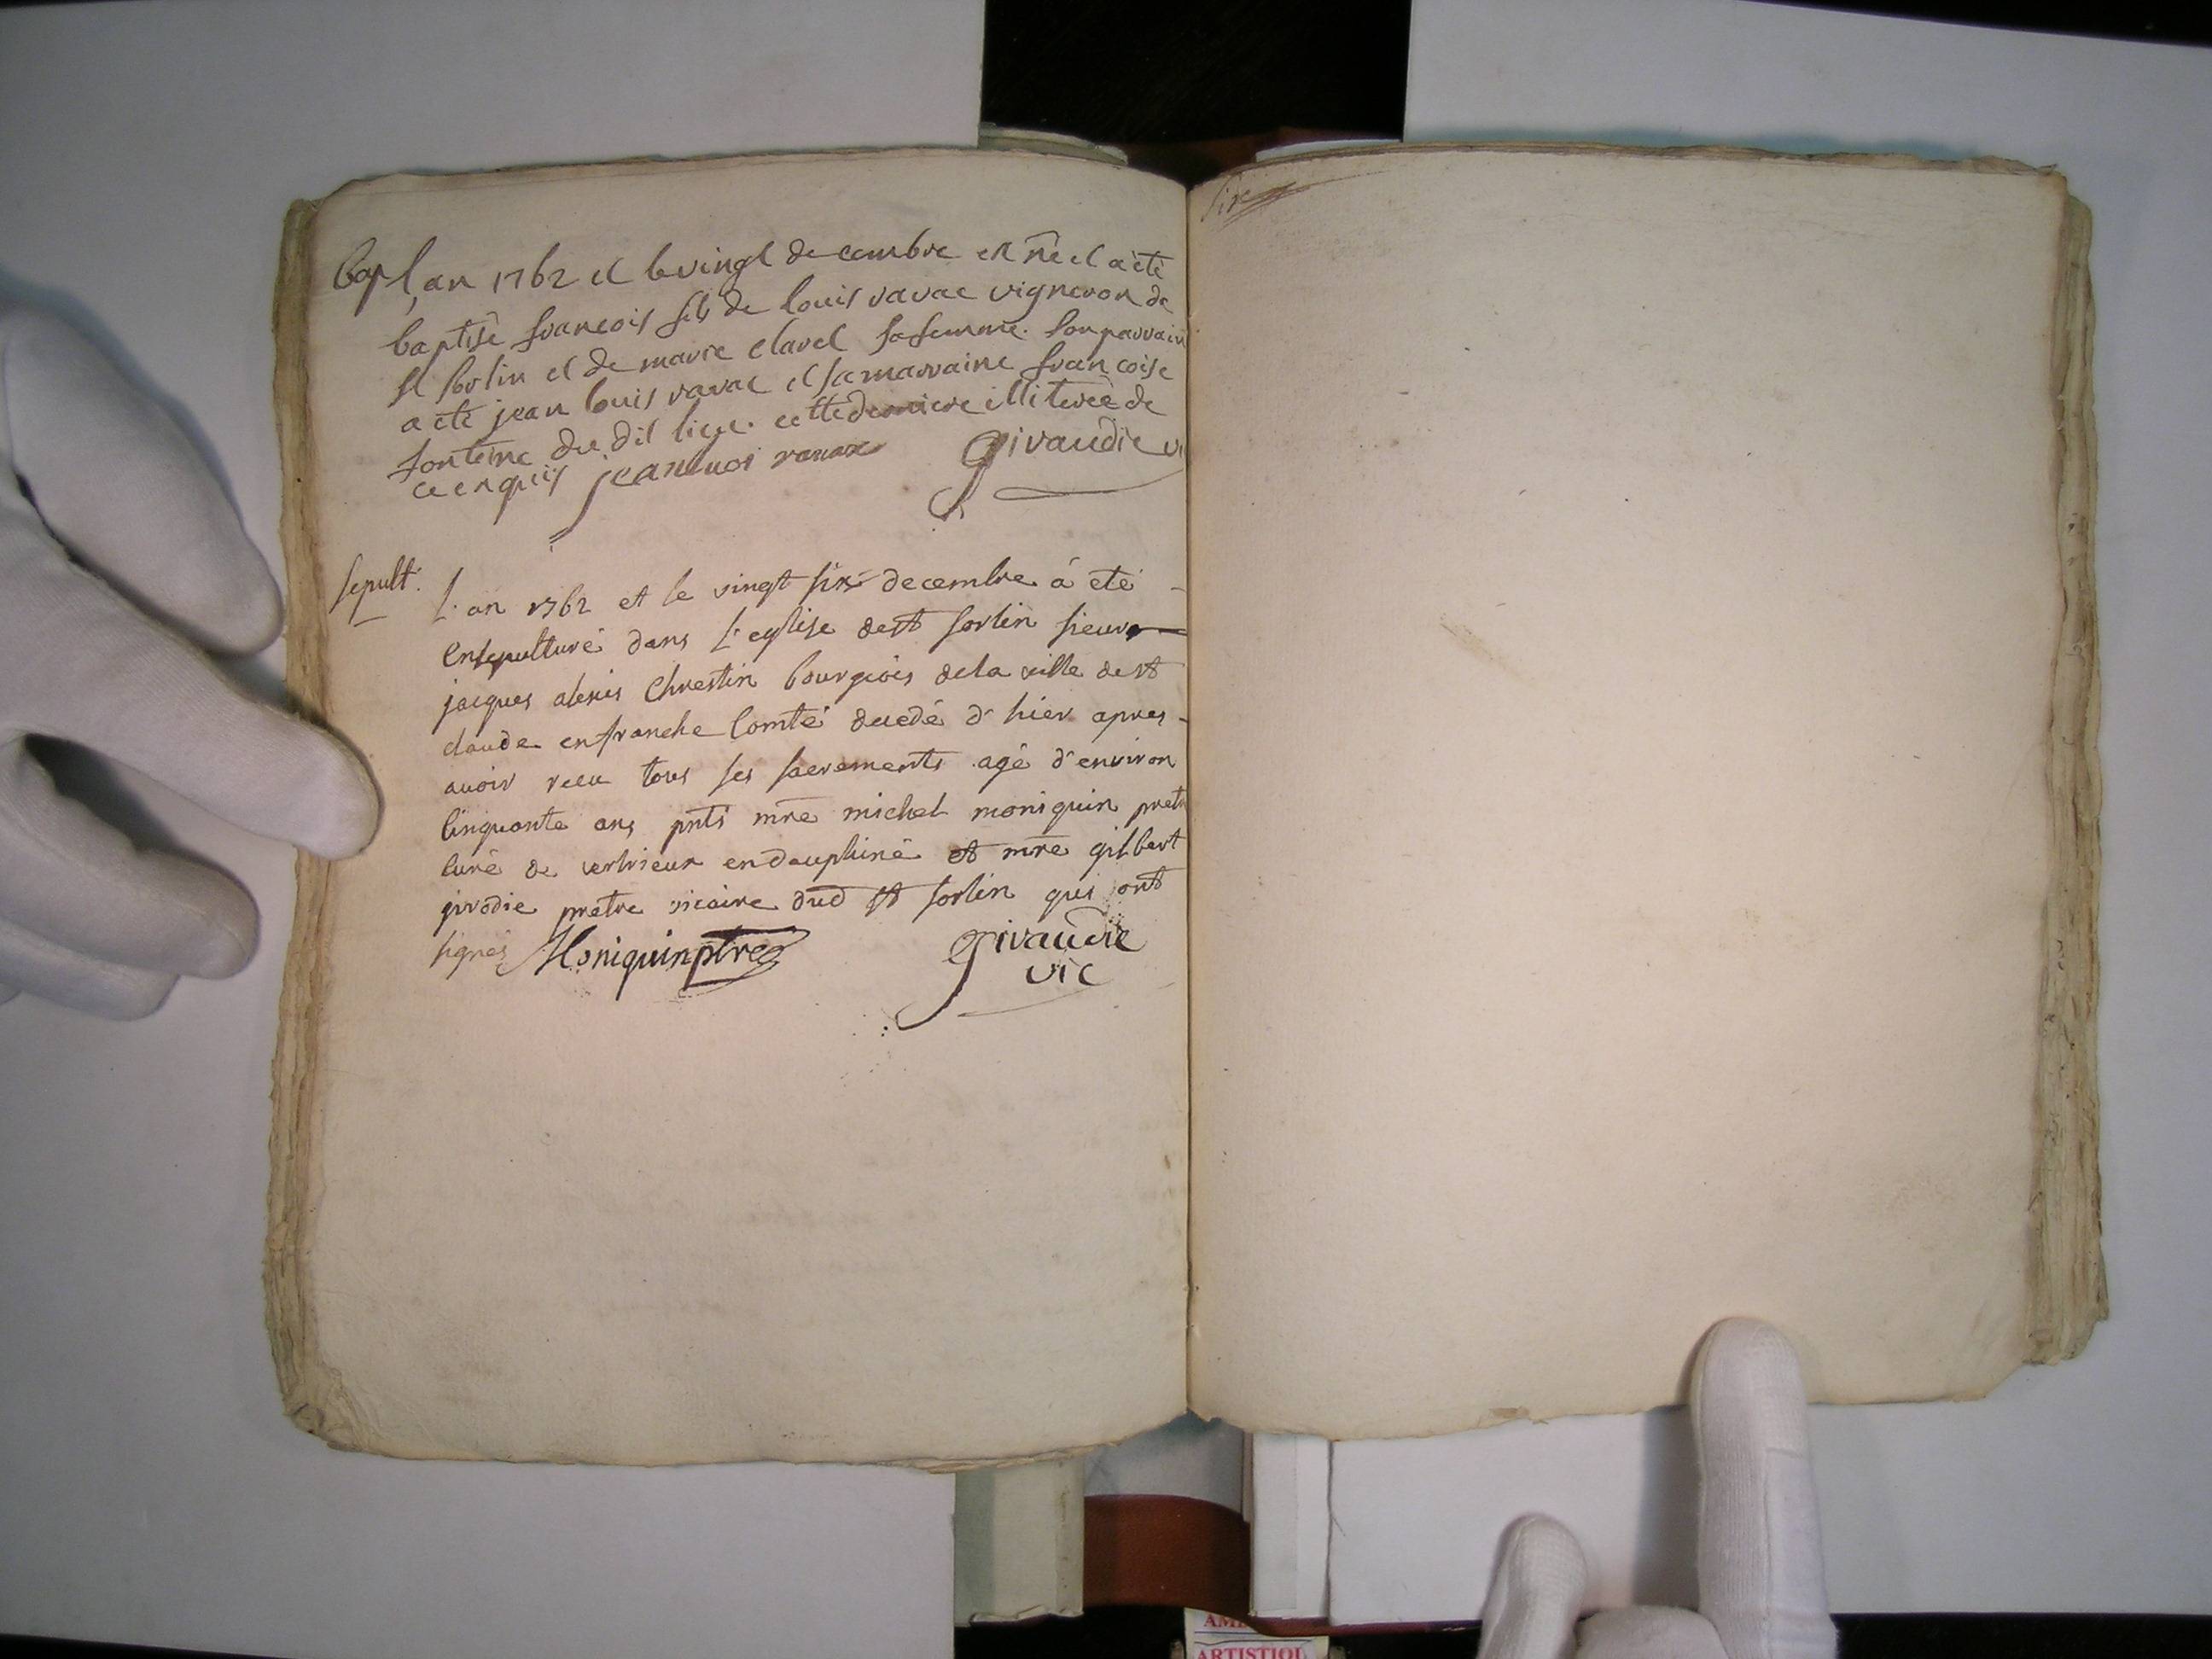 Bap l,an 1762 et le vingt decembre est né et a été
baptisé francois fils de louis ravat vigneron de
st sorlin et de marie clavel sa femme. son parrain
a eté jean louis ravat et sa marraine francoise
fonteine du dit lieu. cette derniere illiterée de
ce enquis jean luoi ravax givaudie vi
sepult. L'an 1762 et le vingt six decembre a eté
ensepulturé dans L'eglise de st sorlin sieur
jacques alexis Chrestin bourgeois de la ville de st
claude en franche Comté decedé d'hier apres
avoir recu tous ses sacrements agé d'environ
Cinquante ans pnts mre michel moniquin pretr
Curé de vertrieux en dauphiné et mre gilbert
girodie pretre vicaire dud st sorlin qui ont
signés Moniquin ptre givaudie
vic
AM
ARTISTIQU